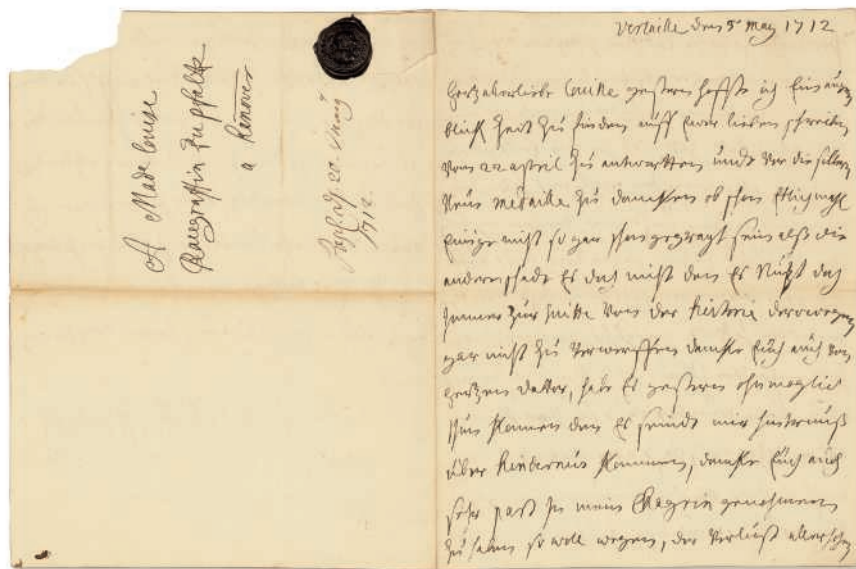 A Mad^e Louise
Raugraffin zu pfaltz
a Hanover
20
1712
Versaille den 5 May 1712
Hertzallerliebe Louisse gestern hoffte ich ein augen
blick zeit zu finden auff Ewer liebes schreiben
vom 22 april zu antwortten undt vor die silberne
Neue medaille zu dancken ob schon etlich mahl
Einige nicht so gar schön geprägt sein alß die
andern schadt Es doch nicht den Es Nutzt doch
Immer zur suitte von der historie derowegen
gar nicht zu verwerffen dancke Euch auch von
hertzen davor, habe Es gestern ohnmoglich
thun können den Es seindt mir hinternuß
über hinternus kommen, dancke Euch auch
sehr part In mein chagrin genohmen
zu haben so woll wegen, der verlust allerschen